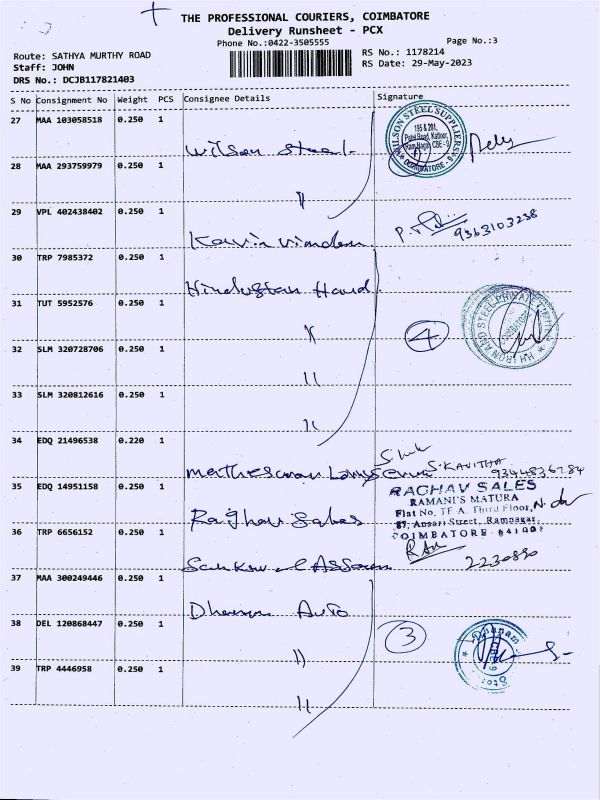 THE PROFESSIONAL COURIERS, COIMBATORE
Delivery Runsheet - PCX
Phone No.:0422-3505555
Page No.:3
Route: SATHYA MURTHY ROAD
Staff: JOHN
DRS No.: DCJB117821403
RS No.: 1178214
RS Date: 29-May-2023
S No Consignment No Weight PCS Consignee Details Signature
27 MAA 103058518 0.250 1
Wilson Steel
WILSON STEEL SUPPLIERS
195 & 201,
Patel Road, Kattoor,
Ram Nagar, CBE - 9
COIMBATORE - 9
28 MAA 293759979 0.250 1
"
29 VPL 402438402 0.250 1
9363103238
30 TRP 7985372 0.250 1
Hindustan Hard
31 TUT 5952576 0.250 1
"
4
IRON AND STEEL PRIVATE LIMITED
32 SLM 320728706 0.250 1
"
33 SLM 320812616 0.250 1
"
34 EDQ 21496538 0.220 1
S. KAVITHA
9344836784
35 EDQ 14951158 0.250 1
Raghav Sales
RAGHAV SALES
RAMANI'S MATURA
Flat No. TF A, Third Floor,
87, Ansari Street, Ramnagar,
COIMBATORE 641009
36 TRP 6656152 0.250 1
2230890
37 MAA 300249446 0.250 1
Auto
38 DEL 120868447 0.250 1
"
3
39 TRP 4446958 0.250 1
"